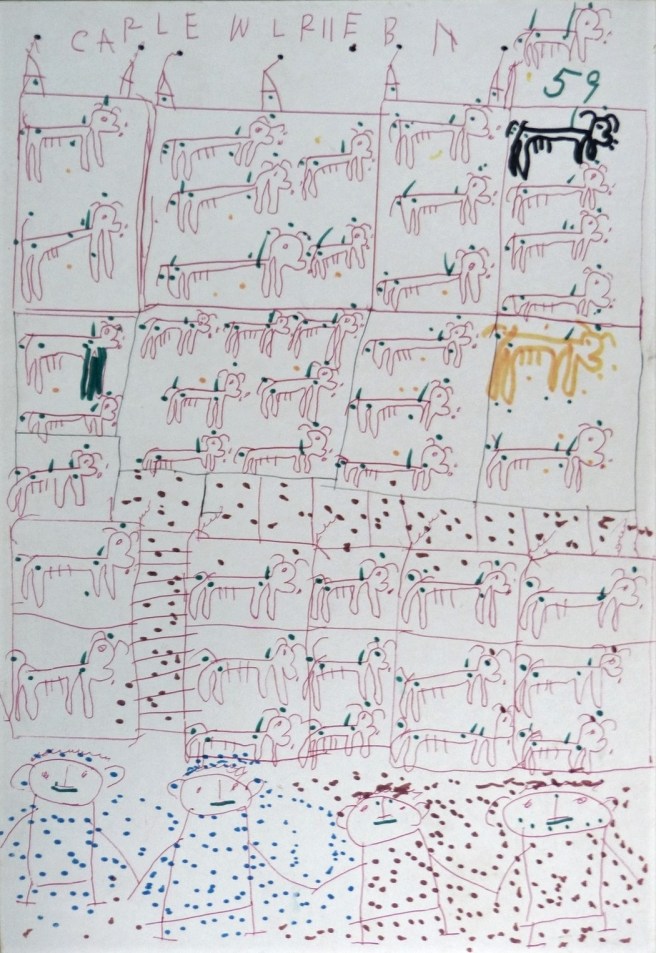 CARLE WLRIIE B N
59